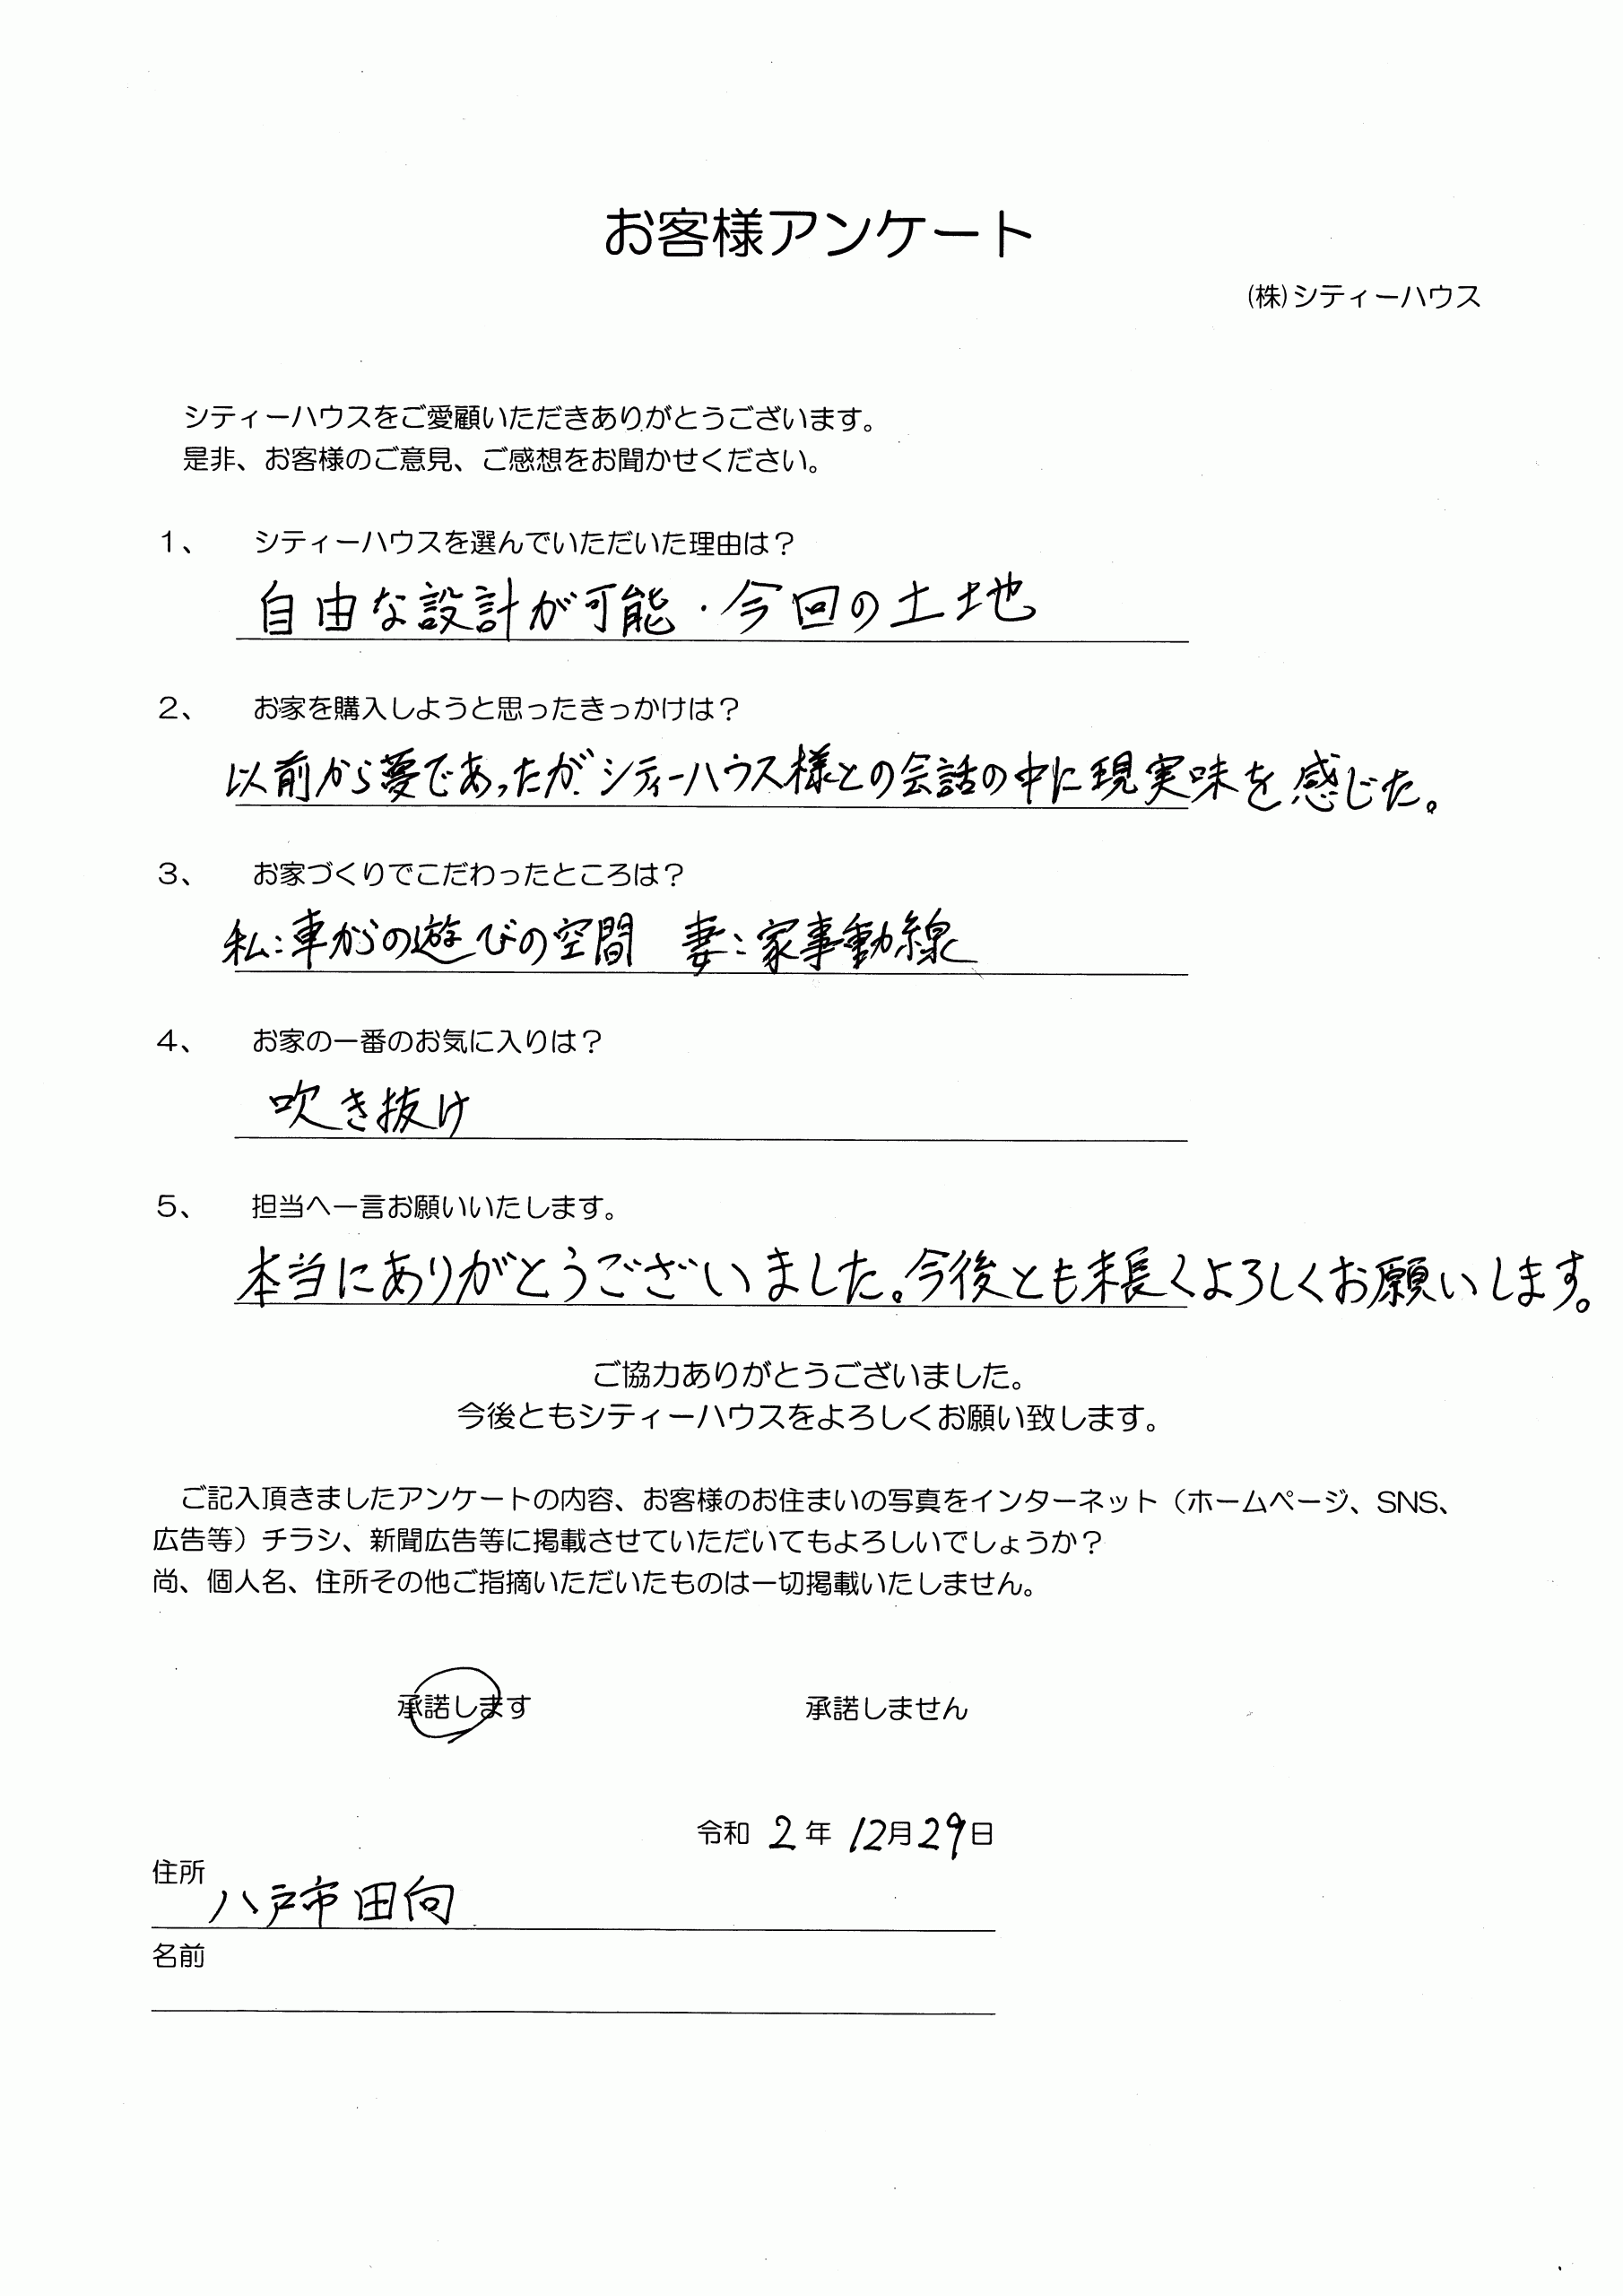 お客様アンケート
(株)シティーハウス
シティーハウスをご愛顧いただきありがとうございます。
是非、お客様のご意見、ご感想をお聞かせください。
1、 シティーハウスを選んでいただいた理由は？
自由な設計が可能・今回の土地
2、 お家を購入しようと思ったきっかけは？
以前から夢であったが、シティーハウス様との会話の中に現実味を感じた。
3、 お家づくりでこだわったところは？
私：車からの遊びの空間 妻：家事動線
4、 お家の一番のお気に入りは？
吹き抜け
5、 担当へ一言お願いいたします。
本当にありがとうございました。今後とも末長くよろしくお願いします。
ご協力ありがとうございました。
今後ともシティーハウスをよろしくお願い致します。
ご記入頂きましたアンケートの内容、お客様のお住まいの写真をインターネット（ホームページ、SNS、
広告等）チラシ、新聞広告等に掲載させていただいてもよろしいでしょうか？
尚、個人名、住所その他ご指摘いただいたものは一切掲載いたしません。
承諾します 承諾しません
令和 2 年 12月29日
住所
八戸市田向
名前